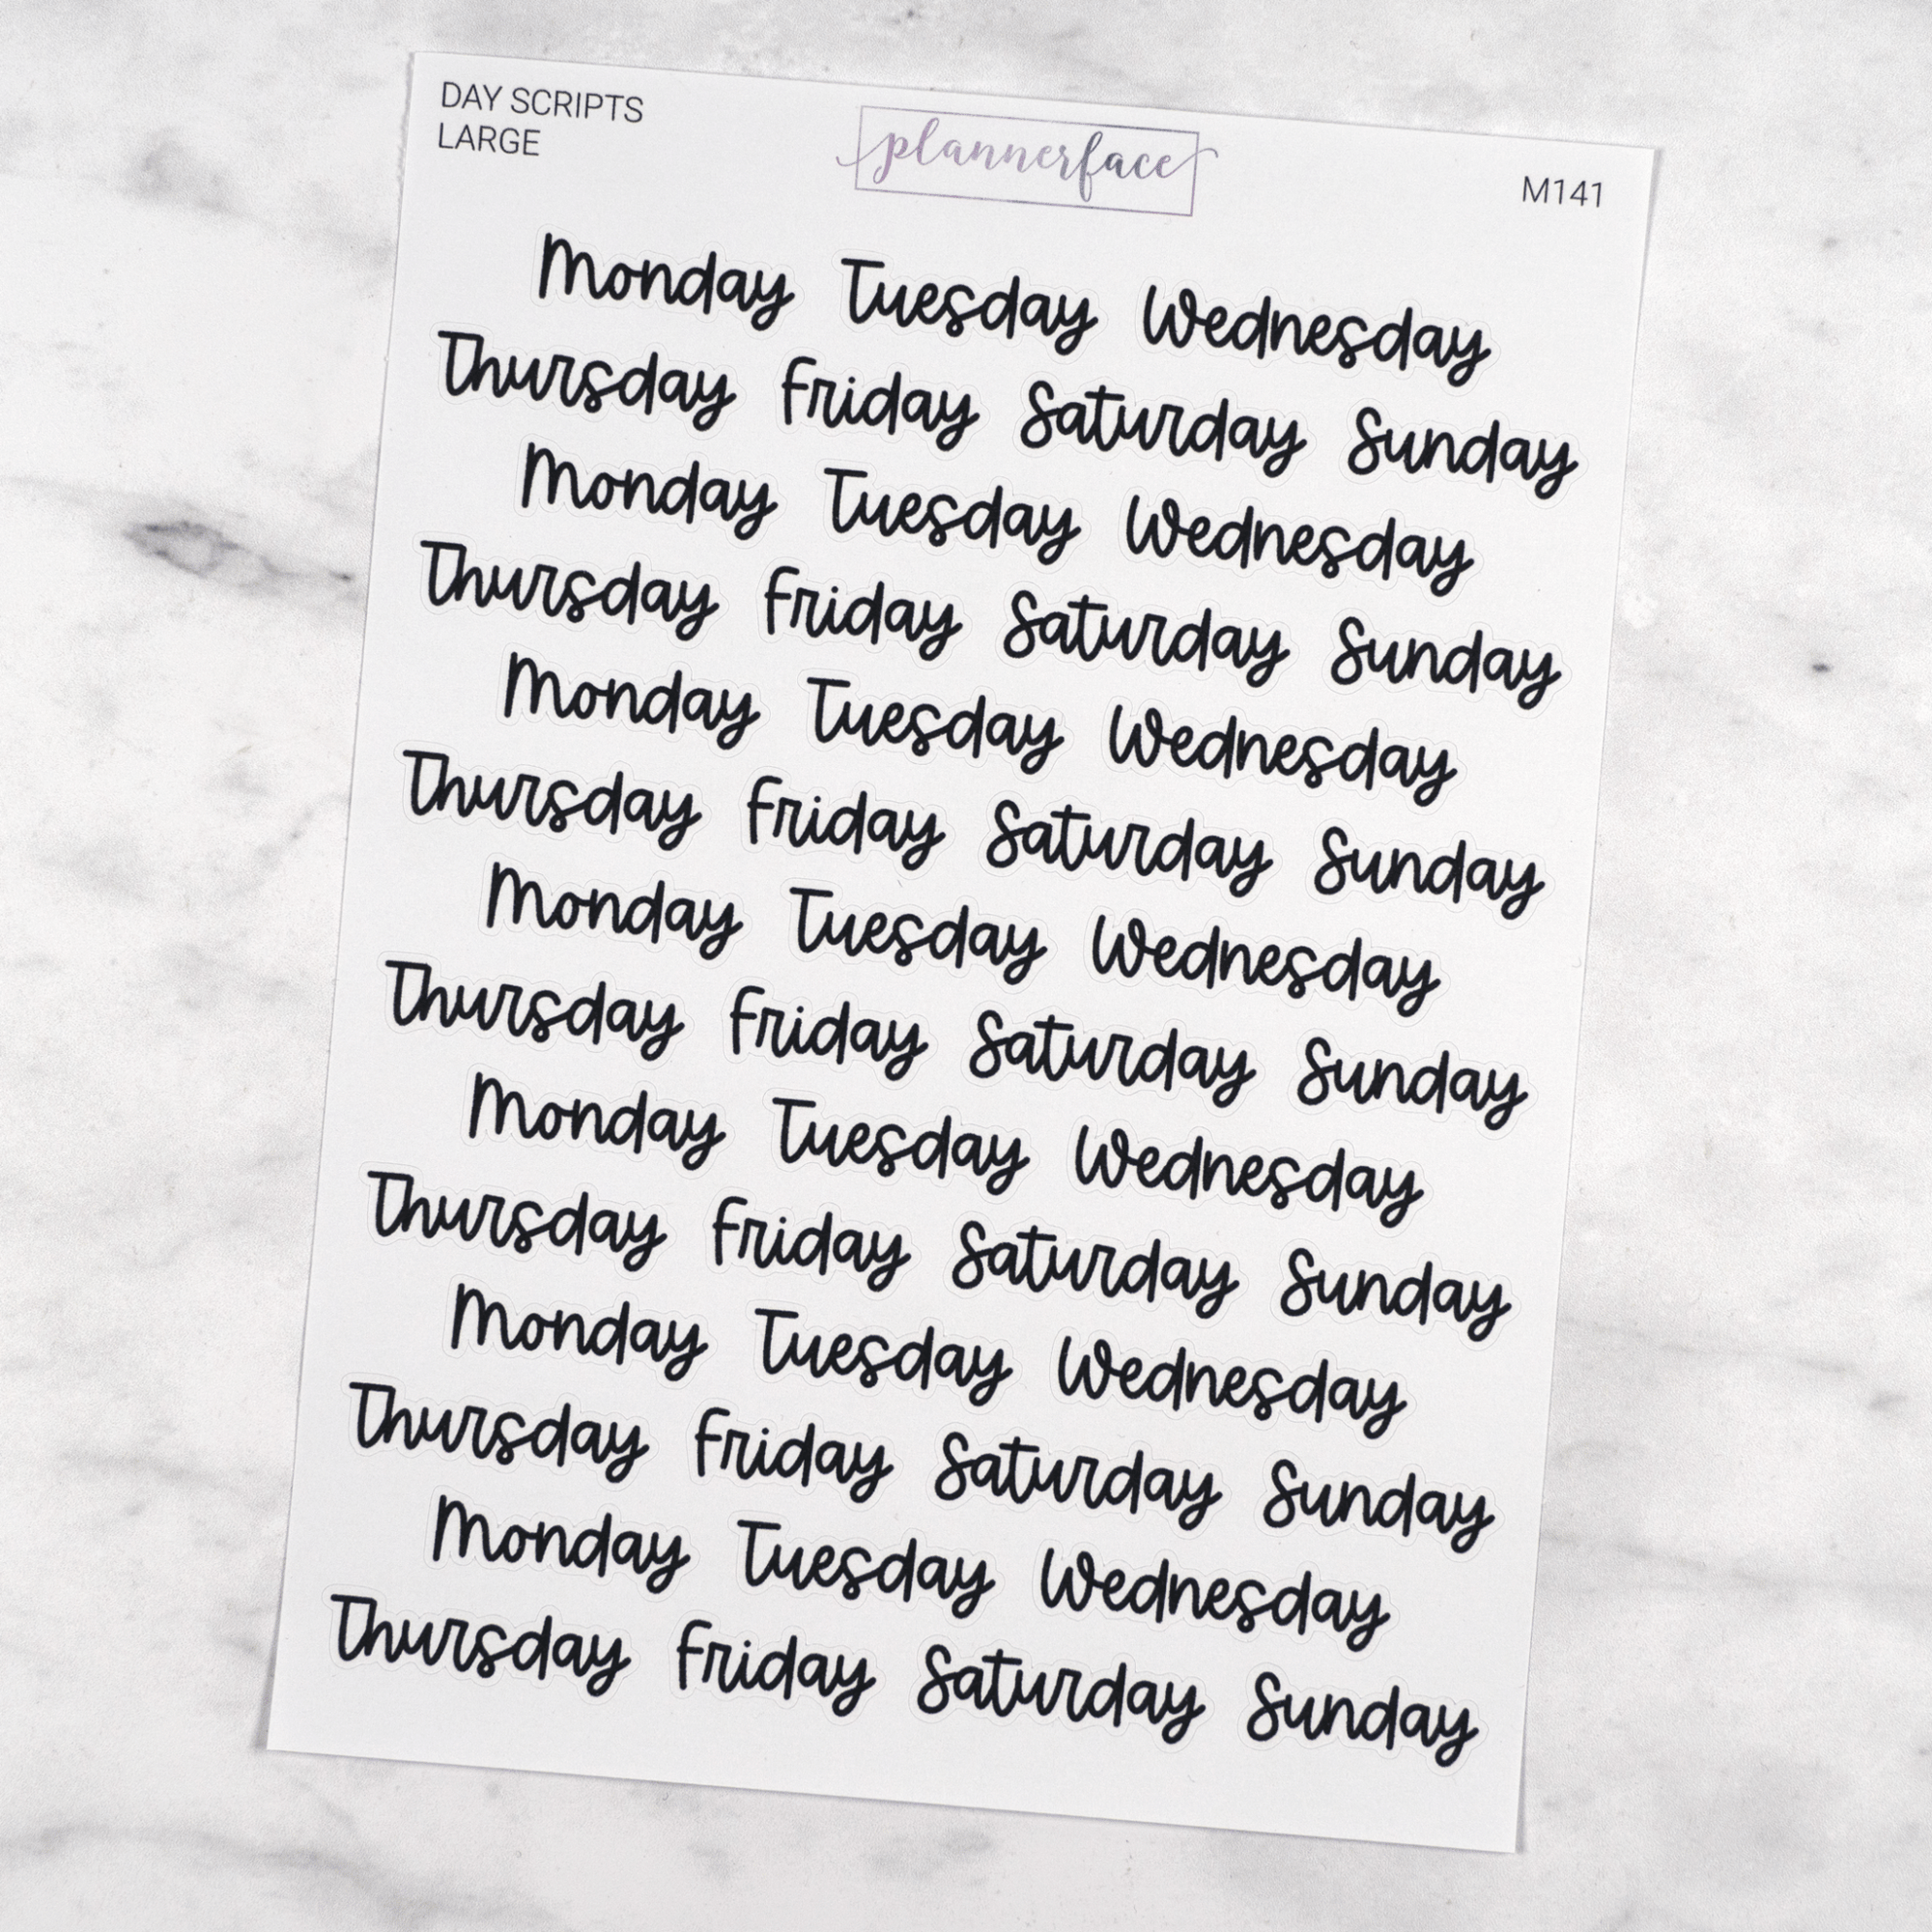 DAY SCRIPTS
LARGE
plannerface
M141
Monday Tuesday Wednesday
Thursday Friday Saturday Sunday
Monday Tuesday Wednesday
Thursday Friday Saturday Sunday
Monday Tuesday Wednesday
Thursday Friday Saturday Sunday
Monday Tuesday Wednesday
Thursday Friday Saturday Sunday
Monday Tuesday Wednesday
Thursday Friday Saturday Sunday
Monday Tuesday Wednesday
Thursday Friday Saturday Sunday
Monday Tuesday Wednesday
Thursday Friday Saturday Sunday